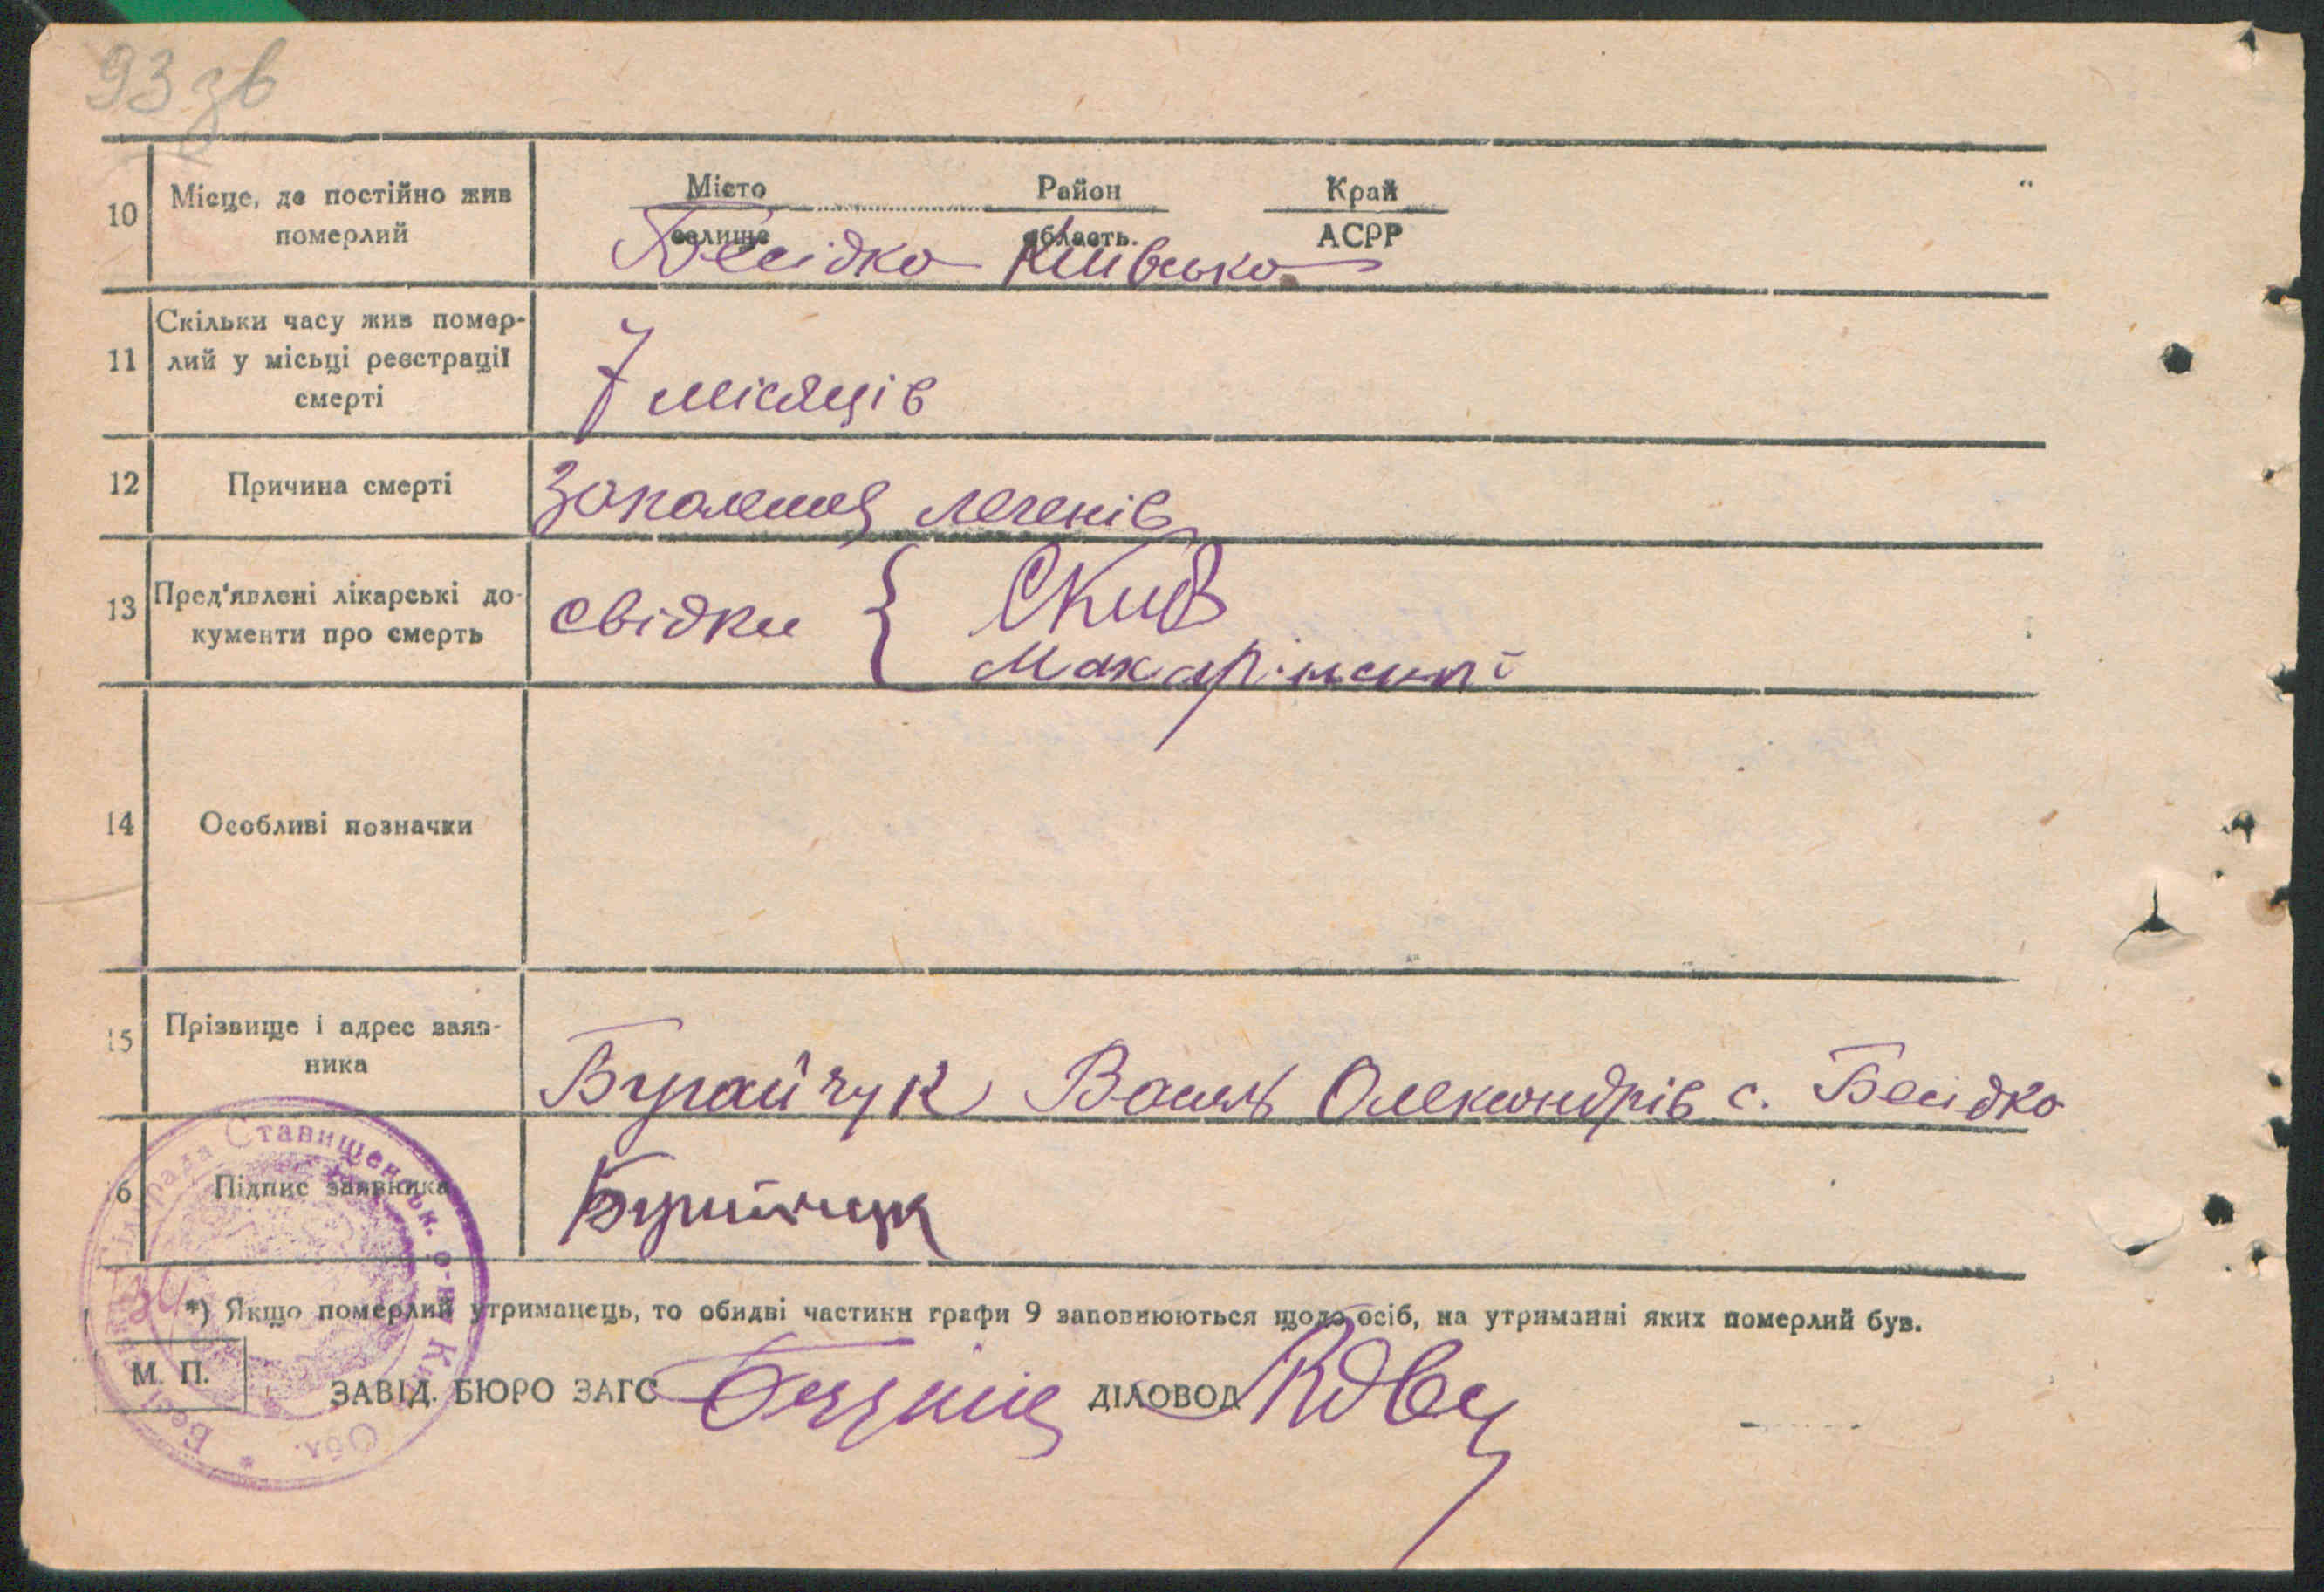 93 зв
Місто Район Край
10 Місце, де постійно жив померлий
селище область. АСРР
Бесідко Київсько
Скільки часу жив помер-
11 лий у місьці реєстрації
смерті
7 місяців
12 Причина смерті Запаленя легенів
13 Пред'явлені лікарські до-
кументи про смерть
свідки {
14 Особливі позначки
15 Прізвище і адрес заяв-
ника
Бугайчук Василь Олександрів с. Бесідко
6 Підпис заявника
*) Якщо померлий утриманець, то обидві частини графи 9 заповнюються щодо осіб, на утриманні яких померлий був.
М. П.
ЗАВІД. БЮРО ЗАГС ДІЛОВОД
рада Ставищенськ. р-ну Київ Обл.